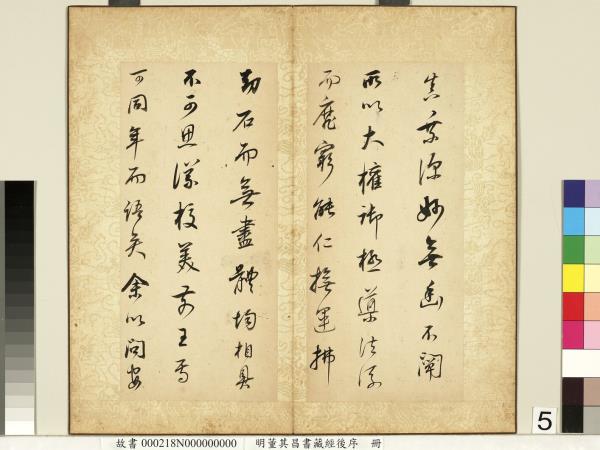 妙無幽不闡
所以大權御極導法流
而靡窮能仁撫運拂
劫石而無盡體均相具
不可思議校美前王焉
可同年而語矣余以問安
5
故書 000218N000000000 明董其昌書藏經後序 冊